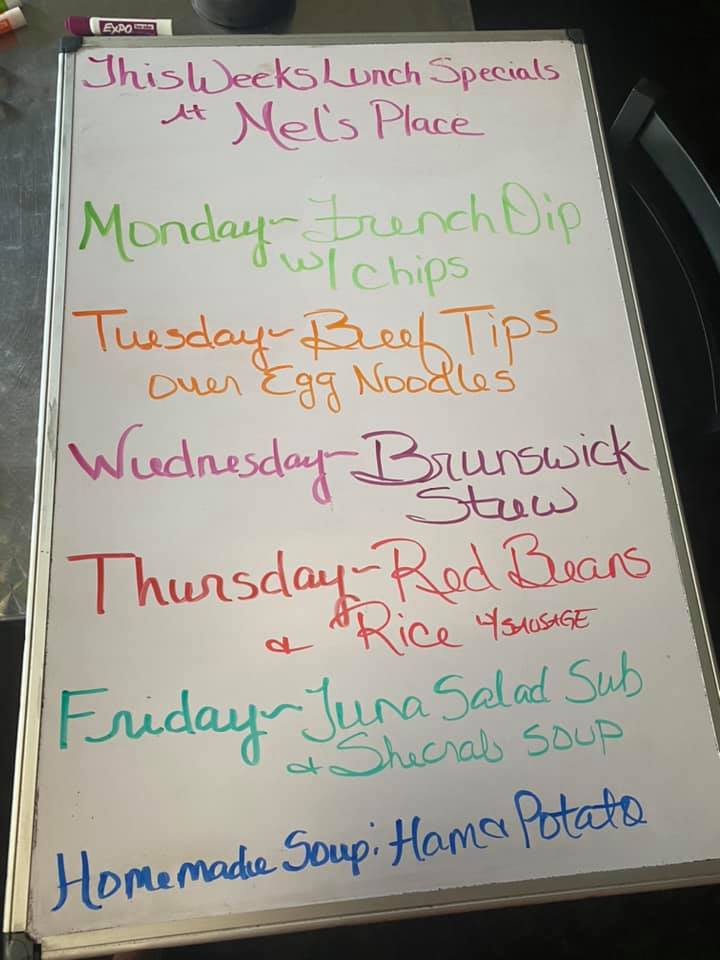 EXPO
This Weeks Lunch Specials
At Mel's Place
Monday~ French Dip
w/ chips
Tuesday~ Beef Tips
over Egg Noodles
Wednesday~ Brunswick
Stew
Thursday~ Red Beans
& Rice w/ SAUSAGE
Friday~ Tuna Salad Sub
& Shecrab SOUP
Homemade Soup: Ham & Potato